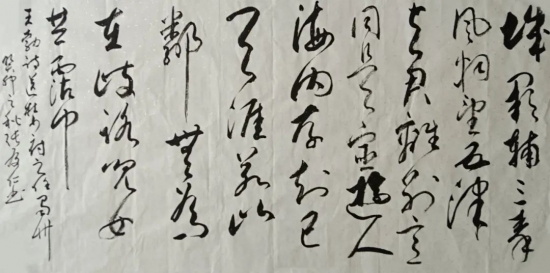 城闕輔三秦
風烟望五津
与君離別意
同是宦遊人
海内存知己
天涯若比
鄰無為
在歧路兒女
共霑巾
王勃詩送杜少府之任蜀州
癸卯之秋張